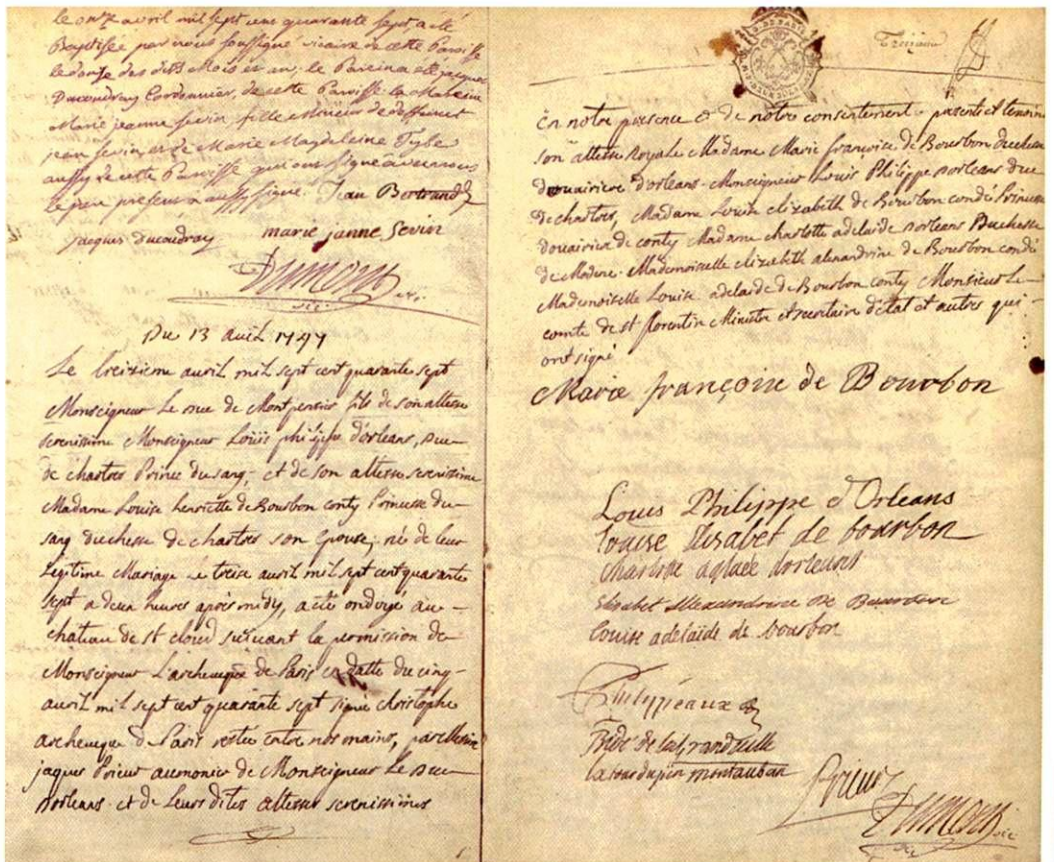 le onze avril mil sept cent quarante sept a été
Baptisée par nous soussigné vicaire de cette Paroisse
le douze des dits Mois et an; le Parein a été jacques
Ducoudray Cordonnier, de cette Paroisse la Mareine
Marie jeanne sevin, fille Mineur de deffunct
jean sevin, et de Marie Magdeleine
aussy de cette Paroisse qui ont signé avec nous
le pere present a aussy signé. Jean Bertrand
jacques Ducoudray marie janne Sevin
Dumont
vic.
Du 13 avril 1747
Le treizieme avril mil sept cent quarante sept
Monseigneur Le Duc de Montpensier fils de son altesse
serenissime Monseigneur Loüis philippe d'orleans, Duc
de chartres Prince du sang, et de son altesse serenissime
Madame Louise henriette de Bourbon conty Princesse du
sang duchesse de chartres son Epouse, né de leur
Legitime Mariage Le treize avril mil sept cent quarante
sept a deux heures après midy, a été ondoyé au
chateau de st cloud suivant la permission de
Monseigneur L'archeveque de Paris en datte du cinq
avril mil sept cent quarante sept signé christophe
archeveque de Paris restée entre nos mains, par Messire
jaques Prieur aumonier de Monseigneur Le Duc
Dorleans et de Leurs dites altesses serenissimes
en notre presence & de notre consentement. presents et temoins
son altesse Royale Madame Marie françoise de Bourbon Duchesse
douairiere d'orleans. Monseigneur Louis Philippe Dorleans Duc
de chartres, Madame Louise elizabeth de Bourbon condé Princesse
douairiere de conty Madame charlotte adelaide Dorleans Duchesse
de Modene. Mademoiselle elizabeth alexandrine de Bourbon condé
Mademoiselle Louise adelaide de Bourbon conty Monsieur Le
comte de st florentin Ministre et secretaire d'état et autres qui
ont signé
Marie françoise de Bourbon
Louis Philippe d'Orleans
Louise Elisabet de bourbon
charlotte aglaée dorleans
Elisabet Alexandrine De Bourbon
louise adelaïde de bourbon
Phelypeaux
Bride de la Grandville
la tour du pin montauban
Prieur
Dumont
vic